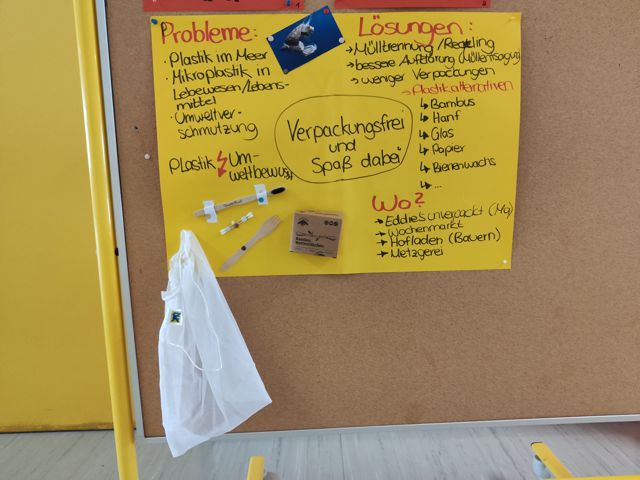 Probleme:
· Plastik im Meer
· Mikroplastik in
Lebewesen/Lebens-
mittel
· Umweltver-
schmutzung
Plastik ↯ Um-
weltbewusst
Verpackungsfrei
und
Spaß dabei
Lösungen:
→ Mülltrennung/Recycling
→ bessere Aufklärung (Müllentsorgung)
→ weniger Verpackungen
→ Plastikalternativen
↳ Bambus
↳ Hanf
↳ Glas
↳ Papier
↳ Bienenwachs
↳ ...
Wo?
→ Eddie's unverpackt (Mg)
→ Wochenmarkt
→ Hofladen (Bauern)
→ Metzgerei